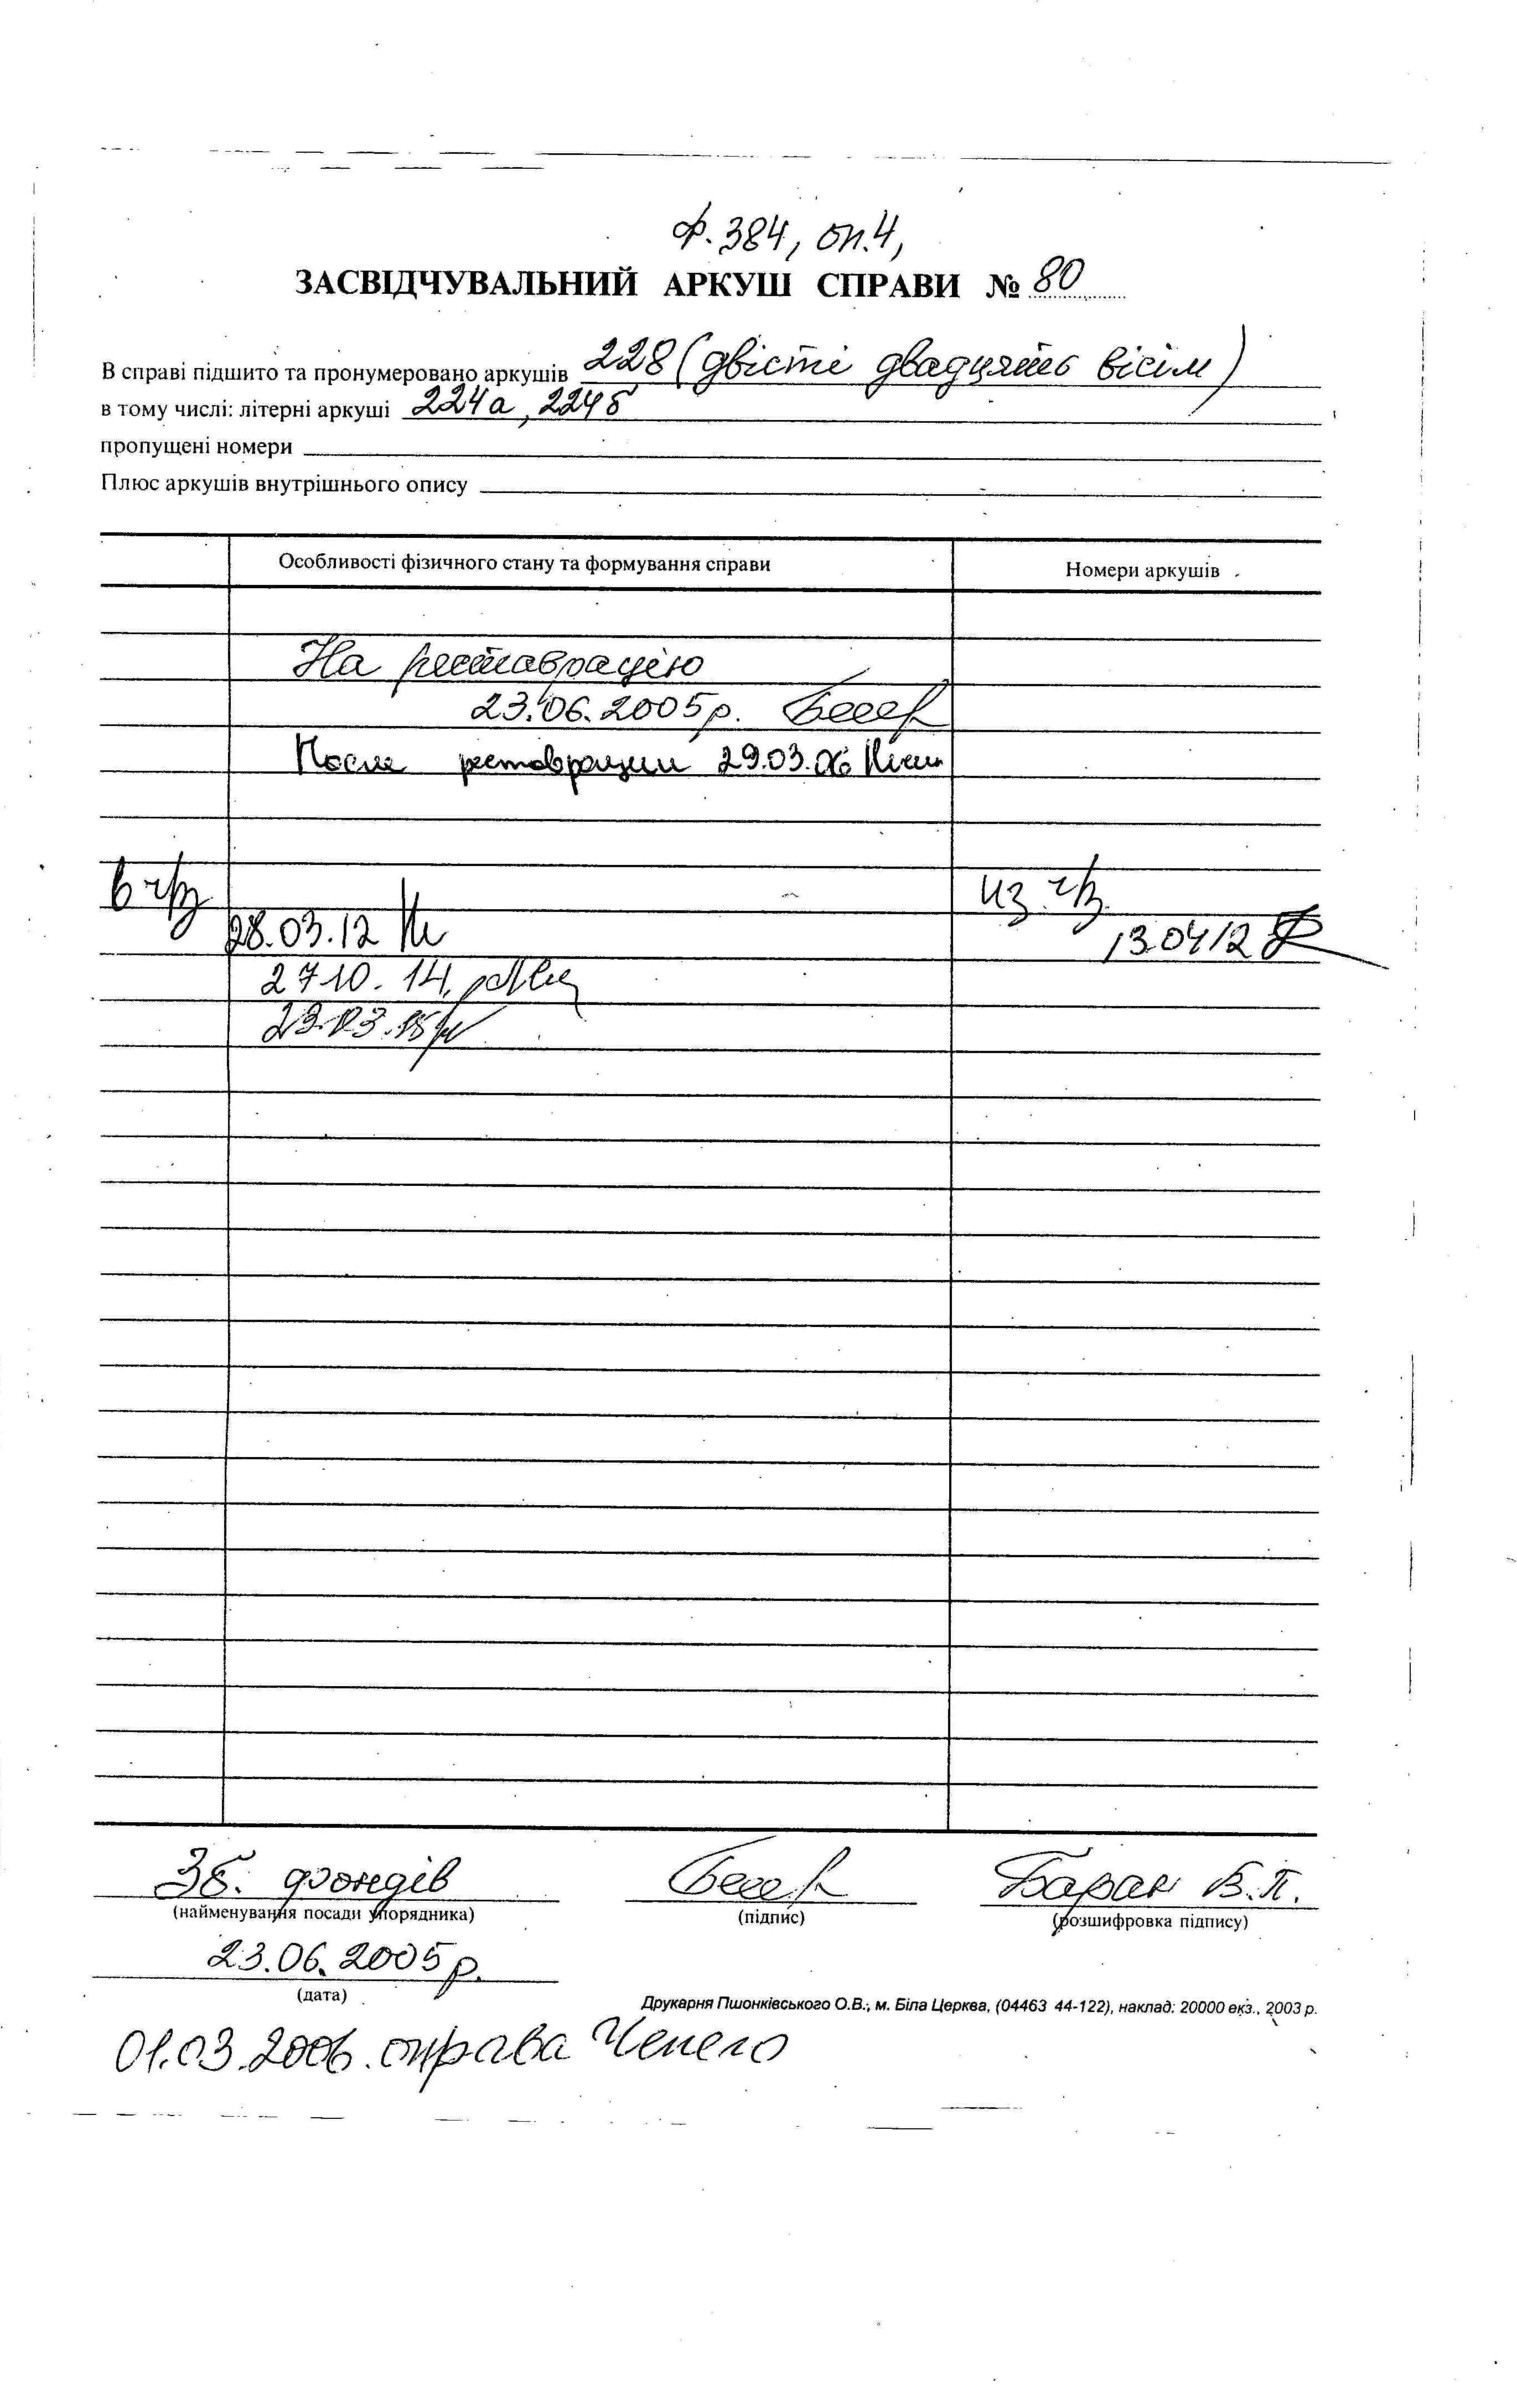 ф. 384, оп. 4,
ЗАСВІДЧУВАЛЬНИЙ АРКУШ СПРАВИ № 80
В справі підшито та пронумеровано аркушів 228 (двісті двадцять вісім)
в тому числі: літерні аркуші 224а, 224б
пропущені номери
Плюс аркушів внутрішнього опису
Особливості фізичного стану та формування справи Номери аркушів
На реставрацію
23.06.2005 р.
После реставрации 29.03.06
в ч/з из ч/з
28.03.12 13.04.12
27.10.14
23.03.15
Зб. фондів Баран В.П.
(найменування посади упорядника) (підпис) (розшифровка підпису)
23.06.2005 р.
(дата)
Друкарня Пшонківського О.В., м. Біла Церква, (04463 44-122), наклад: 20000 екз., 2003 р.
01.03.2006. оправа